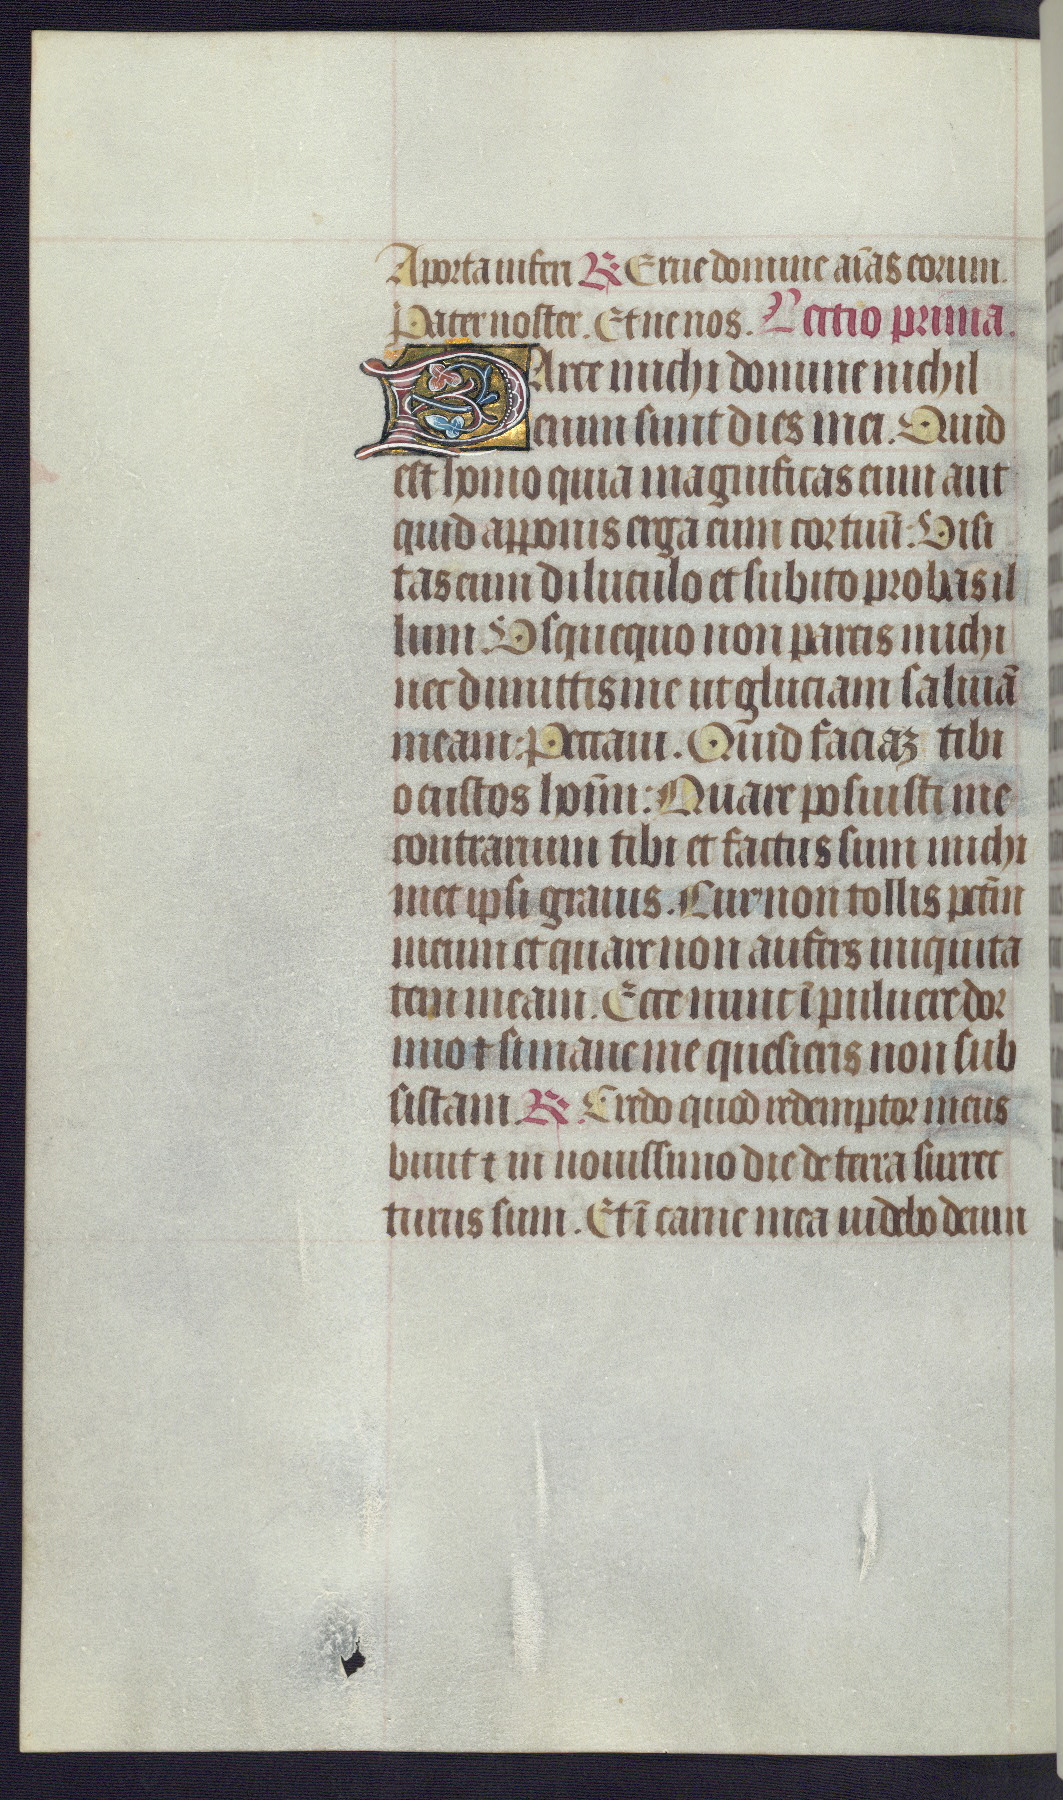 A porta inferi R̷ Erue domine aīas eorum.
Pater noster. Et ne nos. Lectio prima.
Parce michi domine nichil
enim sunt dies mei. Quid
est homo quia magnificas eum aut
quid apponis erga eum cor tuū: Visi
tas eum diluculo et subito probas il
lum Vsquequo non parcis michi
nec dimittis me ut gluciam saliuā
meam: Peccaui. Quid faciaʒ tibi
o custos hoīm: Quare posuisti me
contrarium tibi et factus sum michi
met ipsi grauis. Cur non tollis pctm̄
meum et quare non aufers iniquita
tem meam. Ecce nunc ī puluere dor
mio ⁊ si mane me quesieris non sub
sistam. R̷. Credo quod redemptor meus
biuit ⁊ in nouissimo die de terra surrec
turus sum. Et ī carne mea uidebo deum